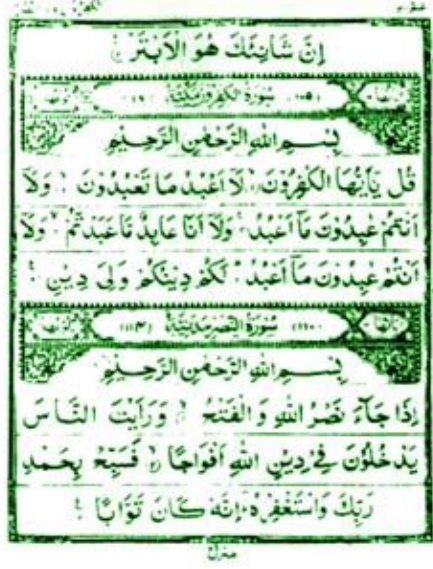 إِنَّ شَانِئَكَ هُوَ الْاَبْتَرُ
سُوْرَةُ الْكٰفِرُوْنَ مَكِّيَّةٌ
بِسْمِ اللهِ الرَّحْمٰنِ الرَّحِيْمِ
قُلْ يٰۤاَيُّهَا الْكٰفِرُوْنَ لَاۤ اَعْبُدُ مَا تَعْبُدُوْنَ وَلَاۤ
اَنْتُمْ عٰبِدُوْنَ مَاۤ اَعْبُدُ وَلَاۤ اَنَا عَابِدٌ مَّا عَبَدْتُّمْ وَلَاۤ
اَنْتُمْ عٰبِدُوْنَ مَاۤ اَعْبُدُ لَكُمْ دِيْنُكُمْ وَلِيَ دِيْنِ
سُوْرَةُ النَّصْرِ مَدَنِيَّةٌ
بِسْمِ اللهِ الرَّحْمٰنِ الرَّحِيْمِ
اِذَا جَآءَ نَصْرُ اللهِ وَالْفَتْحُ وَرَاَيْتَ النَّاسَ
يَدْخُلُوْنَ فِيْ دِيْنِ اللهِ اَفْوَاجًا فَسَبِّحْ بِحَمْدِ
رَبِّكَ وَاسْتَغْفِرْهُ اِنَّهٗ كَانَ تَوَّابًا
منزل